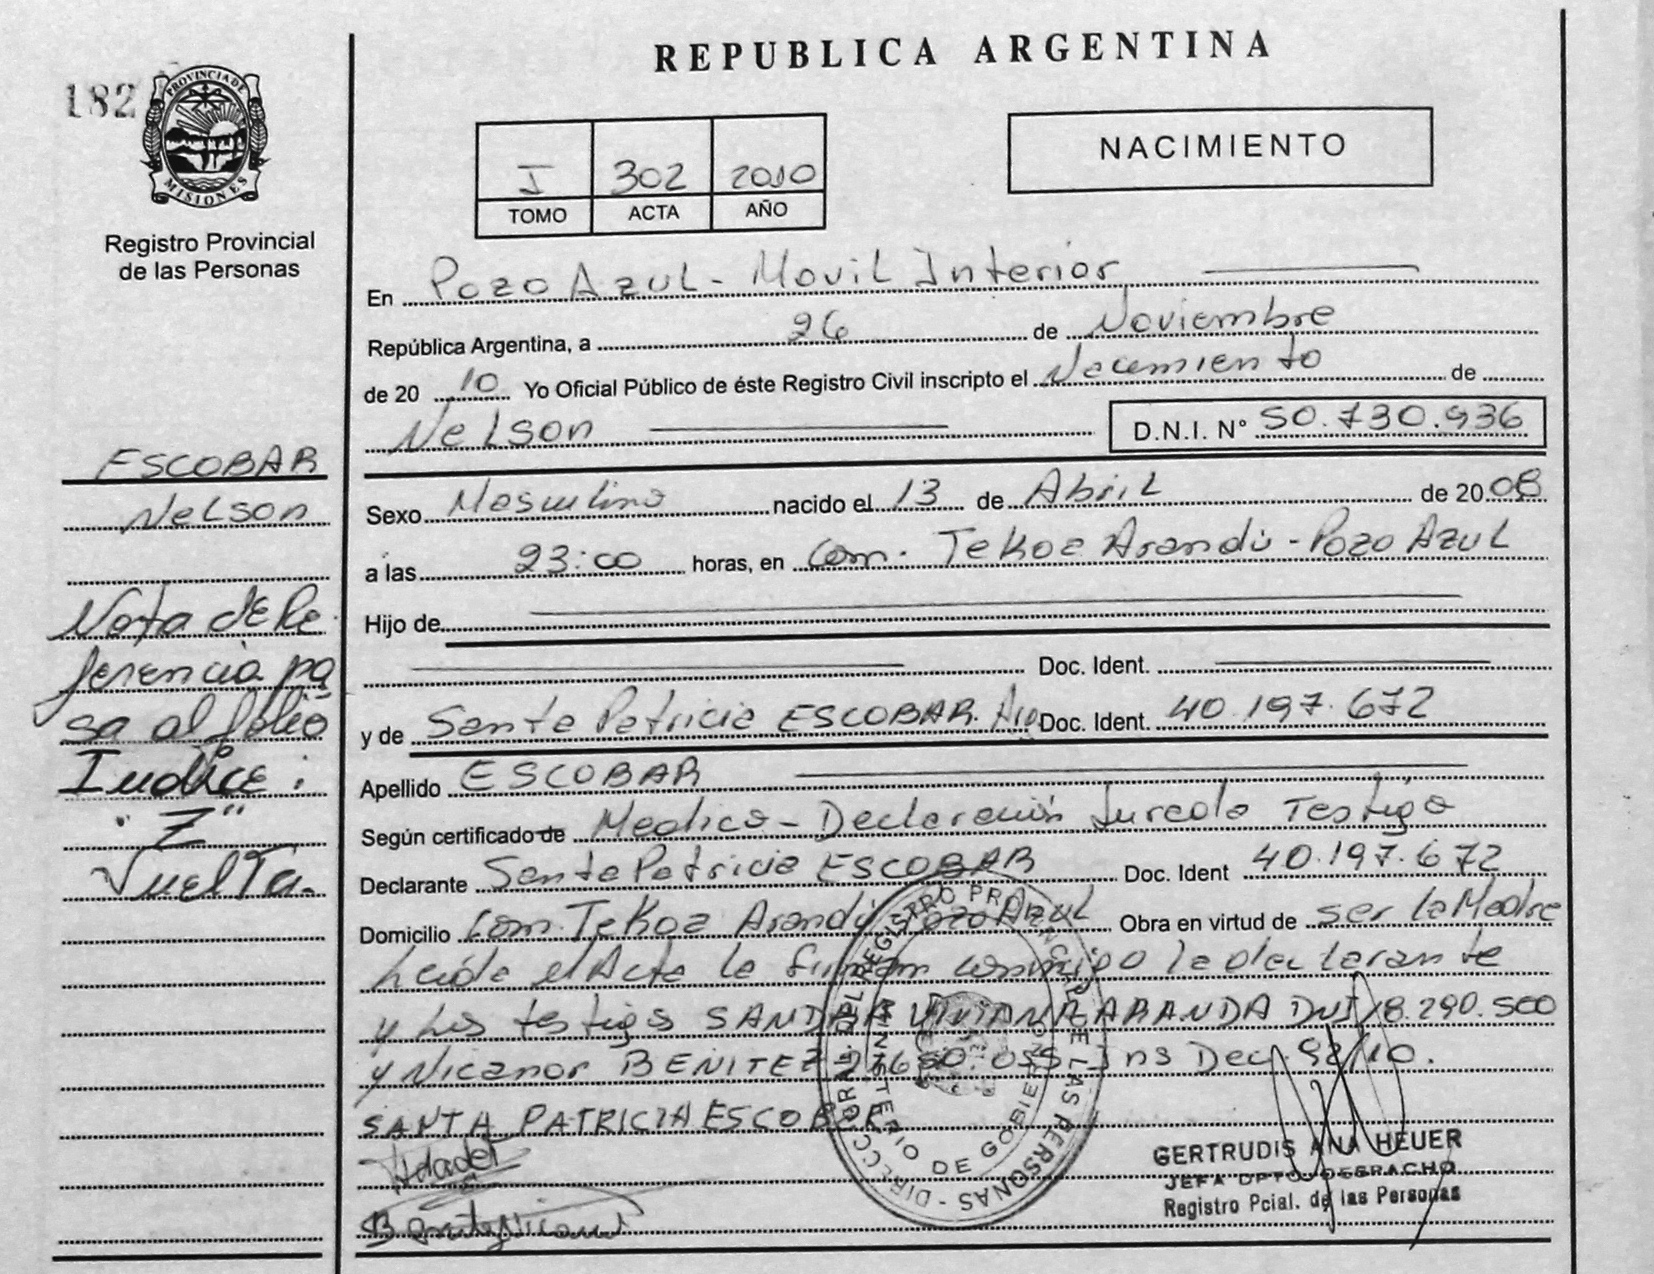 REPUBLICA ARGENTINA
182
PROVINCIA DE
MISIONES
Registro Provincial
de las Personas
I 302 2010
TOMO ACTA AÑO
NACIMIENTO
En Pozo Azul - Movil Interior
República Argentina, a 26 de Noviembre
de 20 10 Yo Oficial Público de éste Registro Civil inscripto el Nacimiento de
Nelson D.N.I. N° 50.730.936
ESCOBAR
Nelson
Sexo Masculino nacido el 13 de Abril de 20 08
a las 23:00 horas, en Com. Tekoa Arandú - Pozo Azul
Hijo de
Doc. Ident.
y de Santa Patricia ESCOBAR. Arg Doc. Ident. 40.197.672
Apellido ESCOBAR
Según certificado de Medico - Declaración Jurada Testigo
Declarante Santa Patricia ESCOBAR Doc. Ident 40.197.672
Domicilio Com. Tekoa Arandú Pozo Azul Obra en virtud de ser la Madre
Leída el Acta la firman conmigo la declarante
y los testigos SANDRA VIVIANA ARANDA DNI 18.290.500
y Nicanor BENITEZ Ins Dec. 92/10.
SANTA PATRICIA ESCOBAR
Nota de Re
ferencia pa
sa al folio
Indice:
"Z"
Vuelta.
DIRECC. GRAL. DEL REGISTRO PROVINCIAL DE LAS PERSONAS
MINISTERIO DE GOBIERNO
GERTRUDIS ANA HEUER
JEFA DPTO. DESPACHO
Registro Pcial. de las Personas